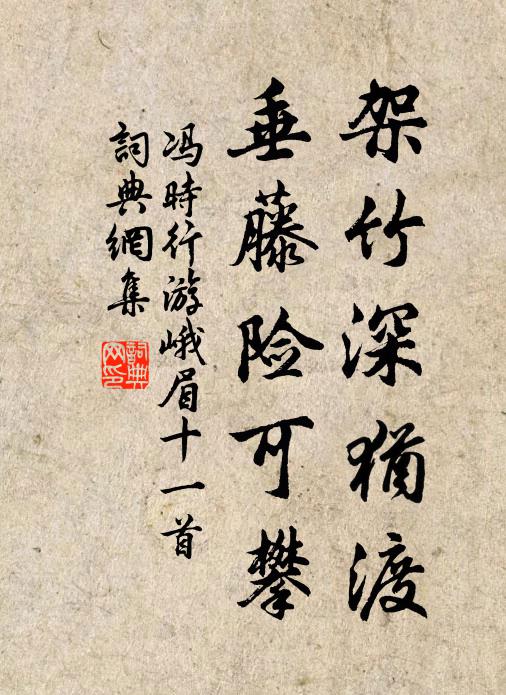 架竹深猶渡
垂藤险可攀
冯時行游峨眉十一首
詞典網集
詞典网印